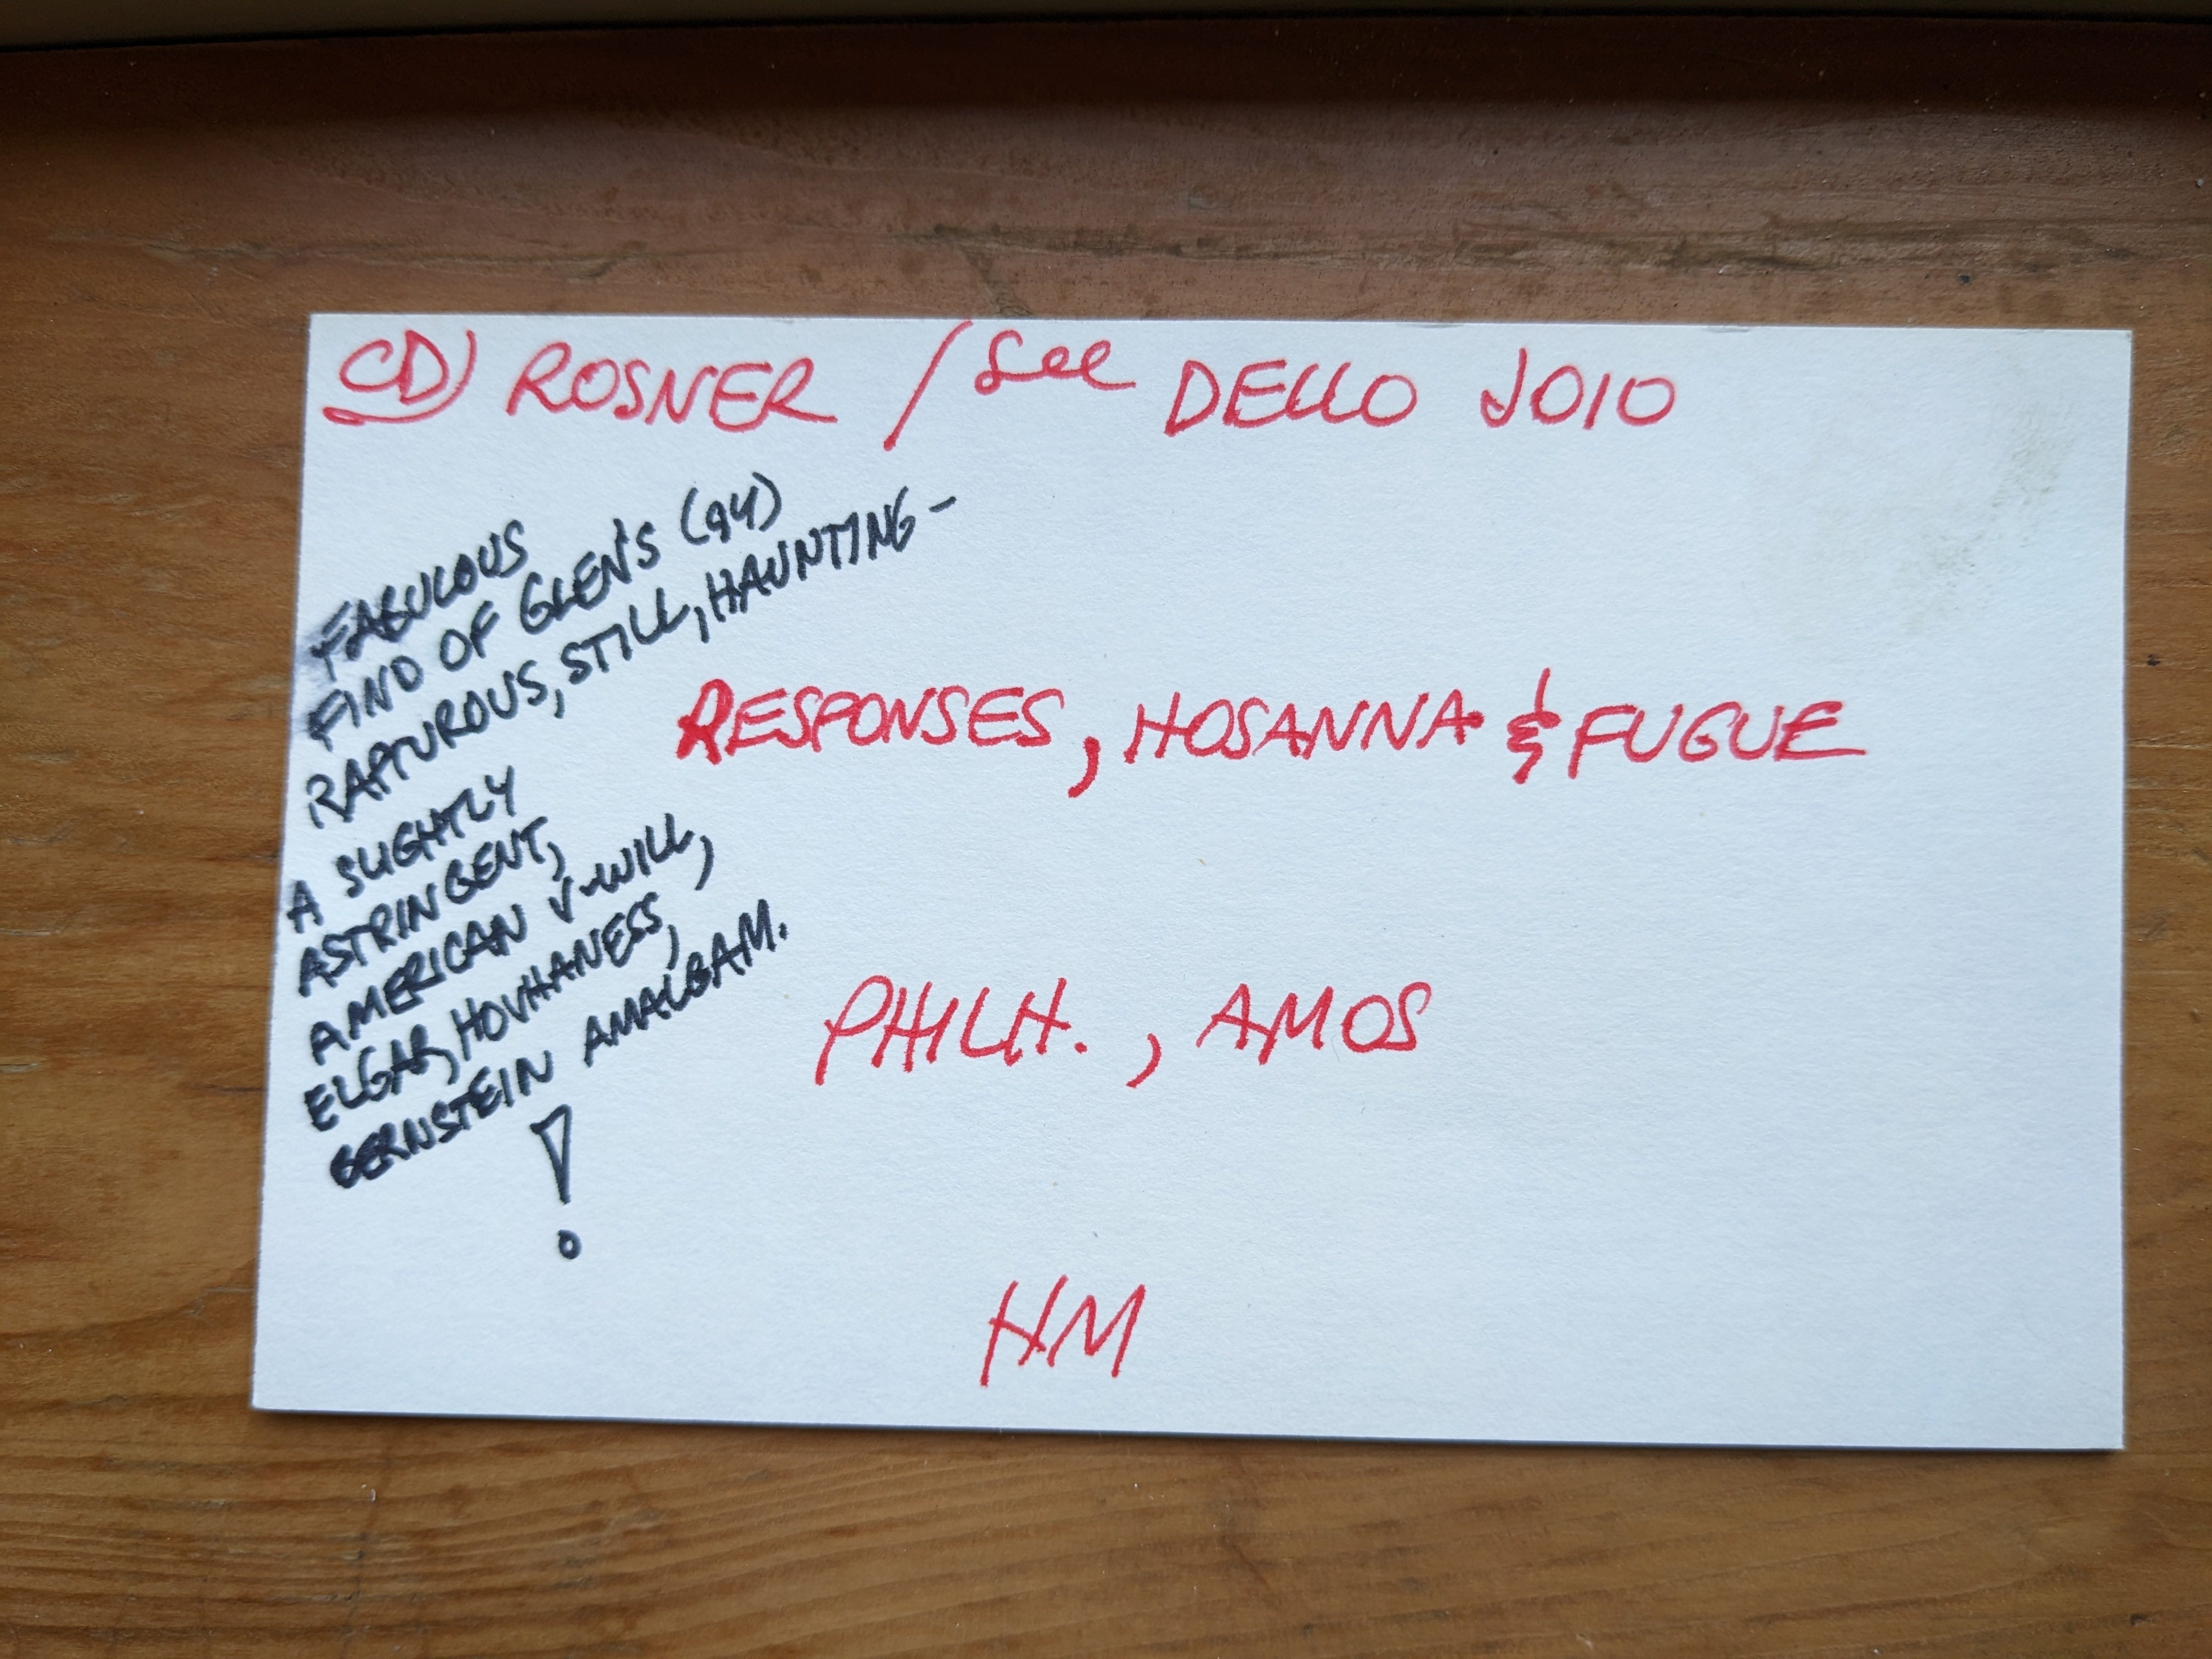 CD) ROSNER / See DELLO JOIO
FABULOUS
FIND OF GLEN'S (94)
RAPTUROUS, STILL, HAUNTING -
A SLIGHTLY
ASTRINGENT,
AMERICAN V-WILL,
ELGAR, HOVHANESS,
BERNSTEIN AMALGAM.
!
RESPONSES, HOSANNA & FUGUE
PHILH., AMOS
HM